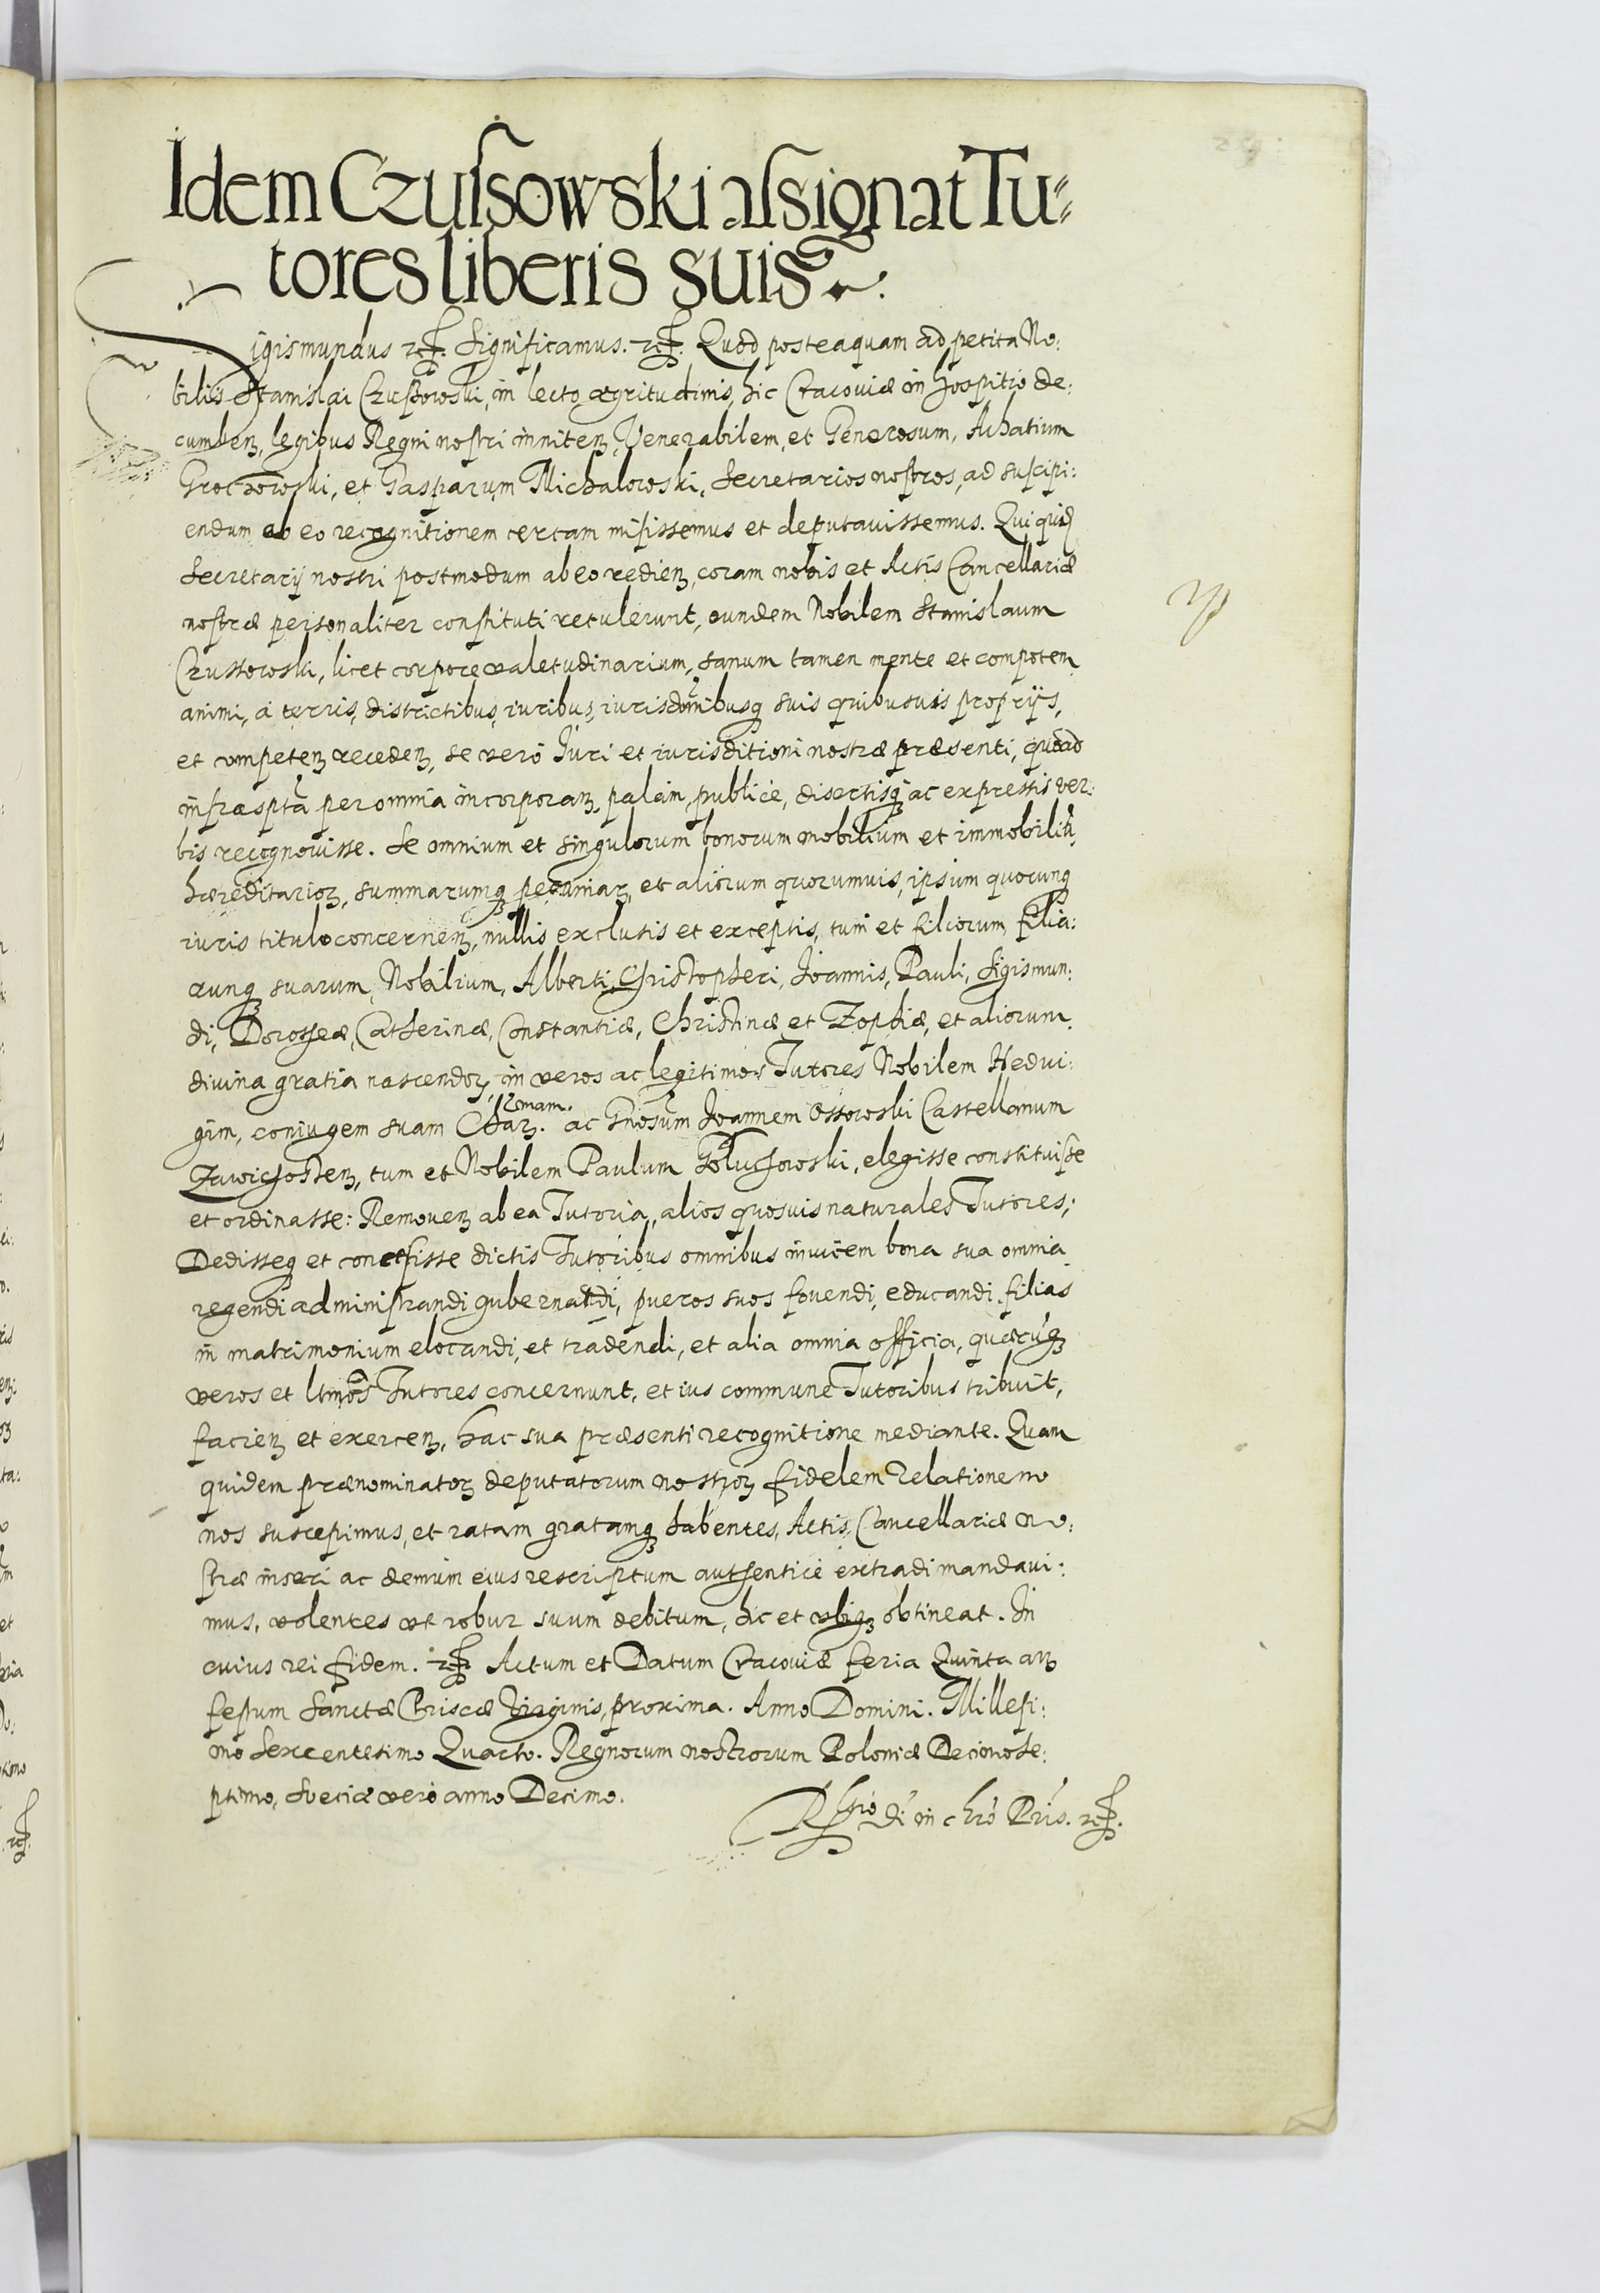 29
Idem Czussowski assignat Tu-
tores liberis suis.
Sigismundus etc. Significamus. etc. Quod posteaquam ad petita No:
bilis Stanislai Czussowski, in lecto ægritudinis, hic Cracoviæ in hospitio de:
cumben., legibus Regni nostri inniten., Venerabilem, et Generosum, Achatium
Grochowski, et Gasparum Michalowski, Secretarios nostros, ad suscipi:
endum ab eo recognitionem certam misissemus et deputavissemus. Qui quid.
Secretarij nostri postmodum ab eo redien., coram nobis et Actis Cancellariæ
nostræ personaliter constituti retulerunt, eundem Nobilem Stanislaum
Czussowski, licet corpore valetudinarium, sanum tamen mente et compotem
animi, á terris, districtibus, iuribus, iurisdõnibusq suis quibusuis proprijs,
et competen. receden., se veró Iuri et iurisditioni nostræ præsenti, quoad
infraspta per omnia incorporan., palám, publicé, disertisq ac expressis ver:
bis recognovisse. Se omnium et singulorum bonorum mobilium et immobiliũ,
hæreditarior., summarumq pecuniar., et aliorum quorumuis, ipsum quocunq
iuris titulo concernen., nullis exclusis et exceptis, tum et filiorum, filia:
rumq suarum, Nobilium, Alberti, Christopheri, Ioannis, Pauli, Sigismun:
di, Dorotheæ, Catherinæ, Constantiæ, Christinæ et Zophiæ, et aliorum
divina gratia nascendor., in veros ac legitimos Tutores Nobilem Hedvi:
gim, coniugem suam Char. ac Gnosum Ioannem Ossowski Castellanum
Zawichosten., tum et Nobilem Paulum Goluchowski, elegisse constituisse
et ordinasse: Remouen. ab ea Tutoria, alios quosuis naturales Tutores;
Dedisseq et concessisse dictis Tutoribus omnibus invicem bona sua omnia
regendi administrandi gubernandi, pueros suos fouendi, educandi, filias
in matrimonium elocandi, et tradendi, et alia omnia officia, quæcũq
veros et ltimos Tutores concernunt, et ius commune Tutoribus tribuit,
facien. et exercen., hac sua præsenti recognitione mediante. Quam
quidem prænominator. deputatorum nostror. fidelem relationem
nos suscepimus, et ratam gratamq habentes, Actis Cancellariæ no:
stræ inseri ac demúm eius rescriptum authenticé extradi mandavi:
mus, volentes vt robur suum debitum, hic et vbiq obtineat. In
cuius rei fidem. etc. Actum et Datum Cracoviæ feria Quinta an.
festum Sanctæ Priscæ Virginis, proxima. Anno Domini. Millesi:
mo Sexcentesimo Quarto. Regnorum nostrorum Poloniæ Decimo Se:
ptimo, Sueciæ veró anno Decimo.
Rlgio di in chro Pris. etc.